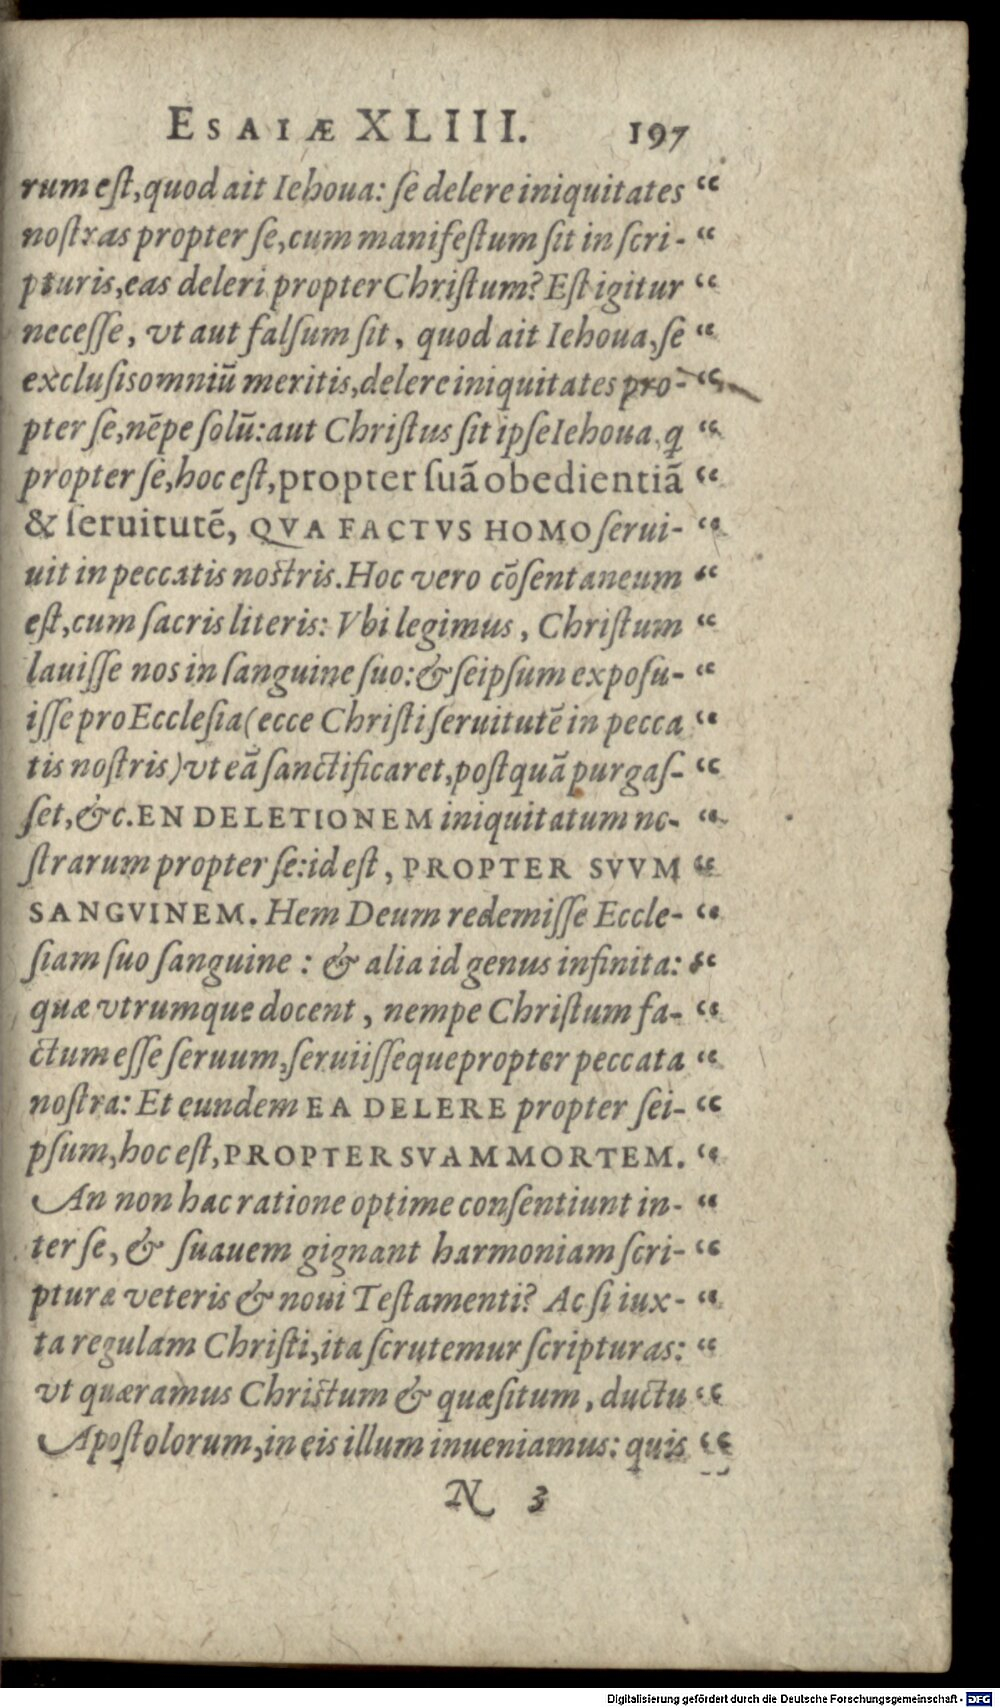 ESAIÆ XLIII. 197
rum eſt, quod ait Iehoua: ſe delere iniquitates “
noſtras propter ſe, cum manifeſtum ſit in ſcri- “
pturis, eas deleri propter Chriſtum? Eſt igitur “
neceſſe, vt aut falſum ſit, quod ait Iehoua, ſe “
excluſis omniū meritis, delere iniquitates pro- “
pter ſe, nēpe ſolū: aut Chriſtus ſit ipſe Iehoua, “
propter ſe, hoc eſt, propter ſuā obedientiā “
& ſeruitutē, QVA FACTVS HOMO ſerui- “
uit in peccatis noſtris. Hoc vero cōſentaneum “
eſt, cum ſacris literis: Vbi legimus, Chriſtum “
lauiſſe nos in ſanguine ſuo: & ſeipſum expoſu- “
iſſe pro Eccleſia (ecce Chriſti ſeruitutē in pecca “
tis noſtris) vt eā ſanctificaret, poſtquā purgaſ- “
ſet, &c. EN DELETIONEM iniquitatum no- “
ſtrarum propter ſe: id eſt, PROPTER SVVM “
SANGVINEM. Hem Deum redemiſſe Eccle- “
ſiam ſuo ſanguine: & alia id genus infinita: “
quæ vtrumque docent, nempe Chriſtum fa- “
ctum eſſe ſeruum, ſeruiiſſeque propter peccata “
noſtra: Et eundem EA DELERE propter ſei- “
pſum, hoc eſt, PROPTER SVAM MORTEM. “
An non hac ratione optime conſentiunt in- “
ter ſe, & ſuauem gignant harmoniam ſcri- “
pturæ veteris & noui Teſtamenti? Ac ſi iux- “
ta regulam Chriſti, ita ſcrutemur ſcripturas: “
vt quæramus Chriſtum & quæſitum, ductu “
Apoſtolorum, in eis illum inueniamus: quis “
N 3
Digitalisierung gefördert durch die Deutsche Forschungsgemeinschaft - DFG